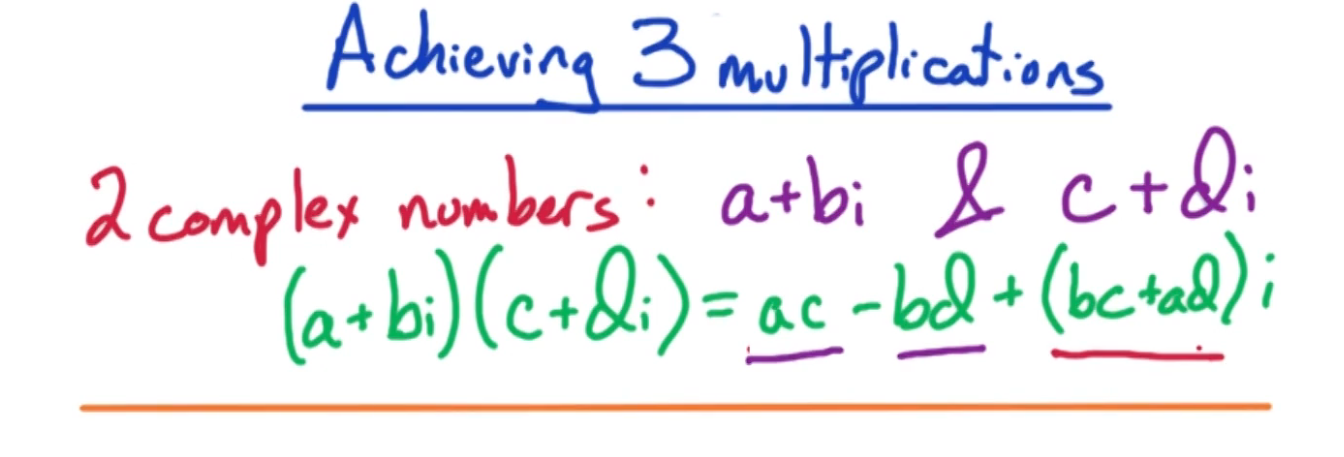 Achieving 3 multiplications
2 complex numbers: a+bi & c+di
(a+bi)(c+di)= ac -bd + (bc+ad)i